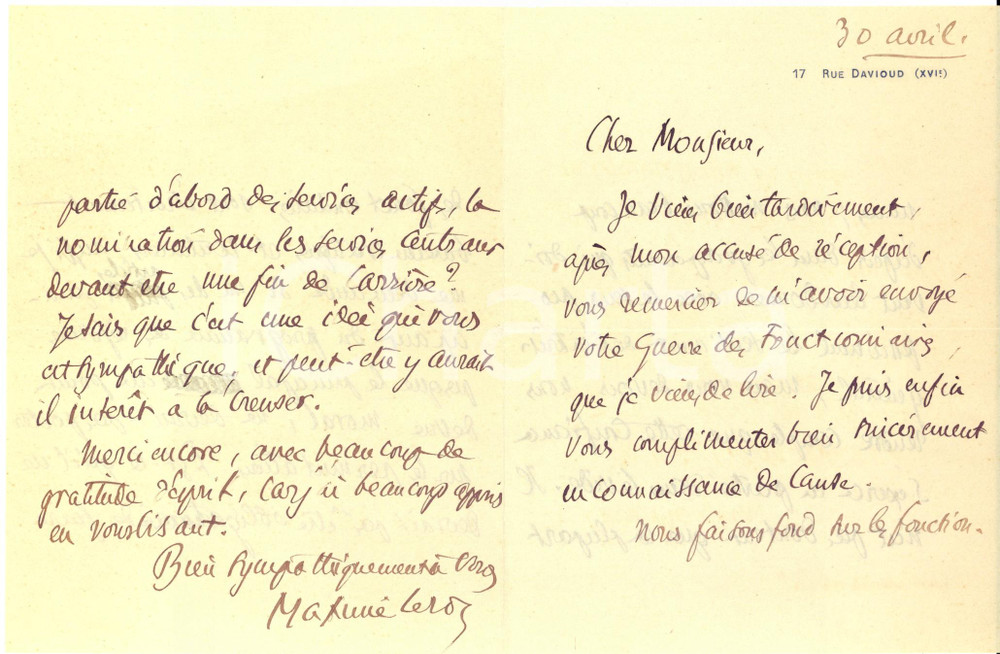 30 avril.
17 RUE DAVIOUD (XVIe)
Cher Monsieur,
Je viens bien tardivement,
après mon accusé de réception,
vous remercier de m'avoir envoyé
votre Guerre des Fonctionnaires,
que je viens de lire. Je puis enfin
vous complimenter bien sincèrement
en connaissance de cause.
Nous faisons fond sur la fonction-
partie d'abord des services actifs, la
nomination dans les services centraux
devant être une fin de carrière?
Je sais que c'est une idée qui vous
est sympathique, et peut-être y aurait
il intérêt a la creuser.
Merci encore, avec beaucoup de
gratitude d'esprit, car j'ai beaucoup appris
en vous lisant.
Bien sympathiquement à vous
Maxime Leroy